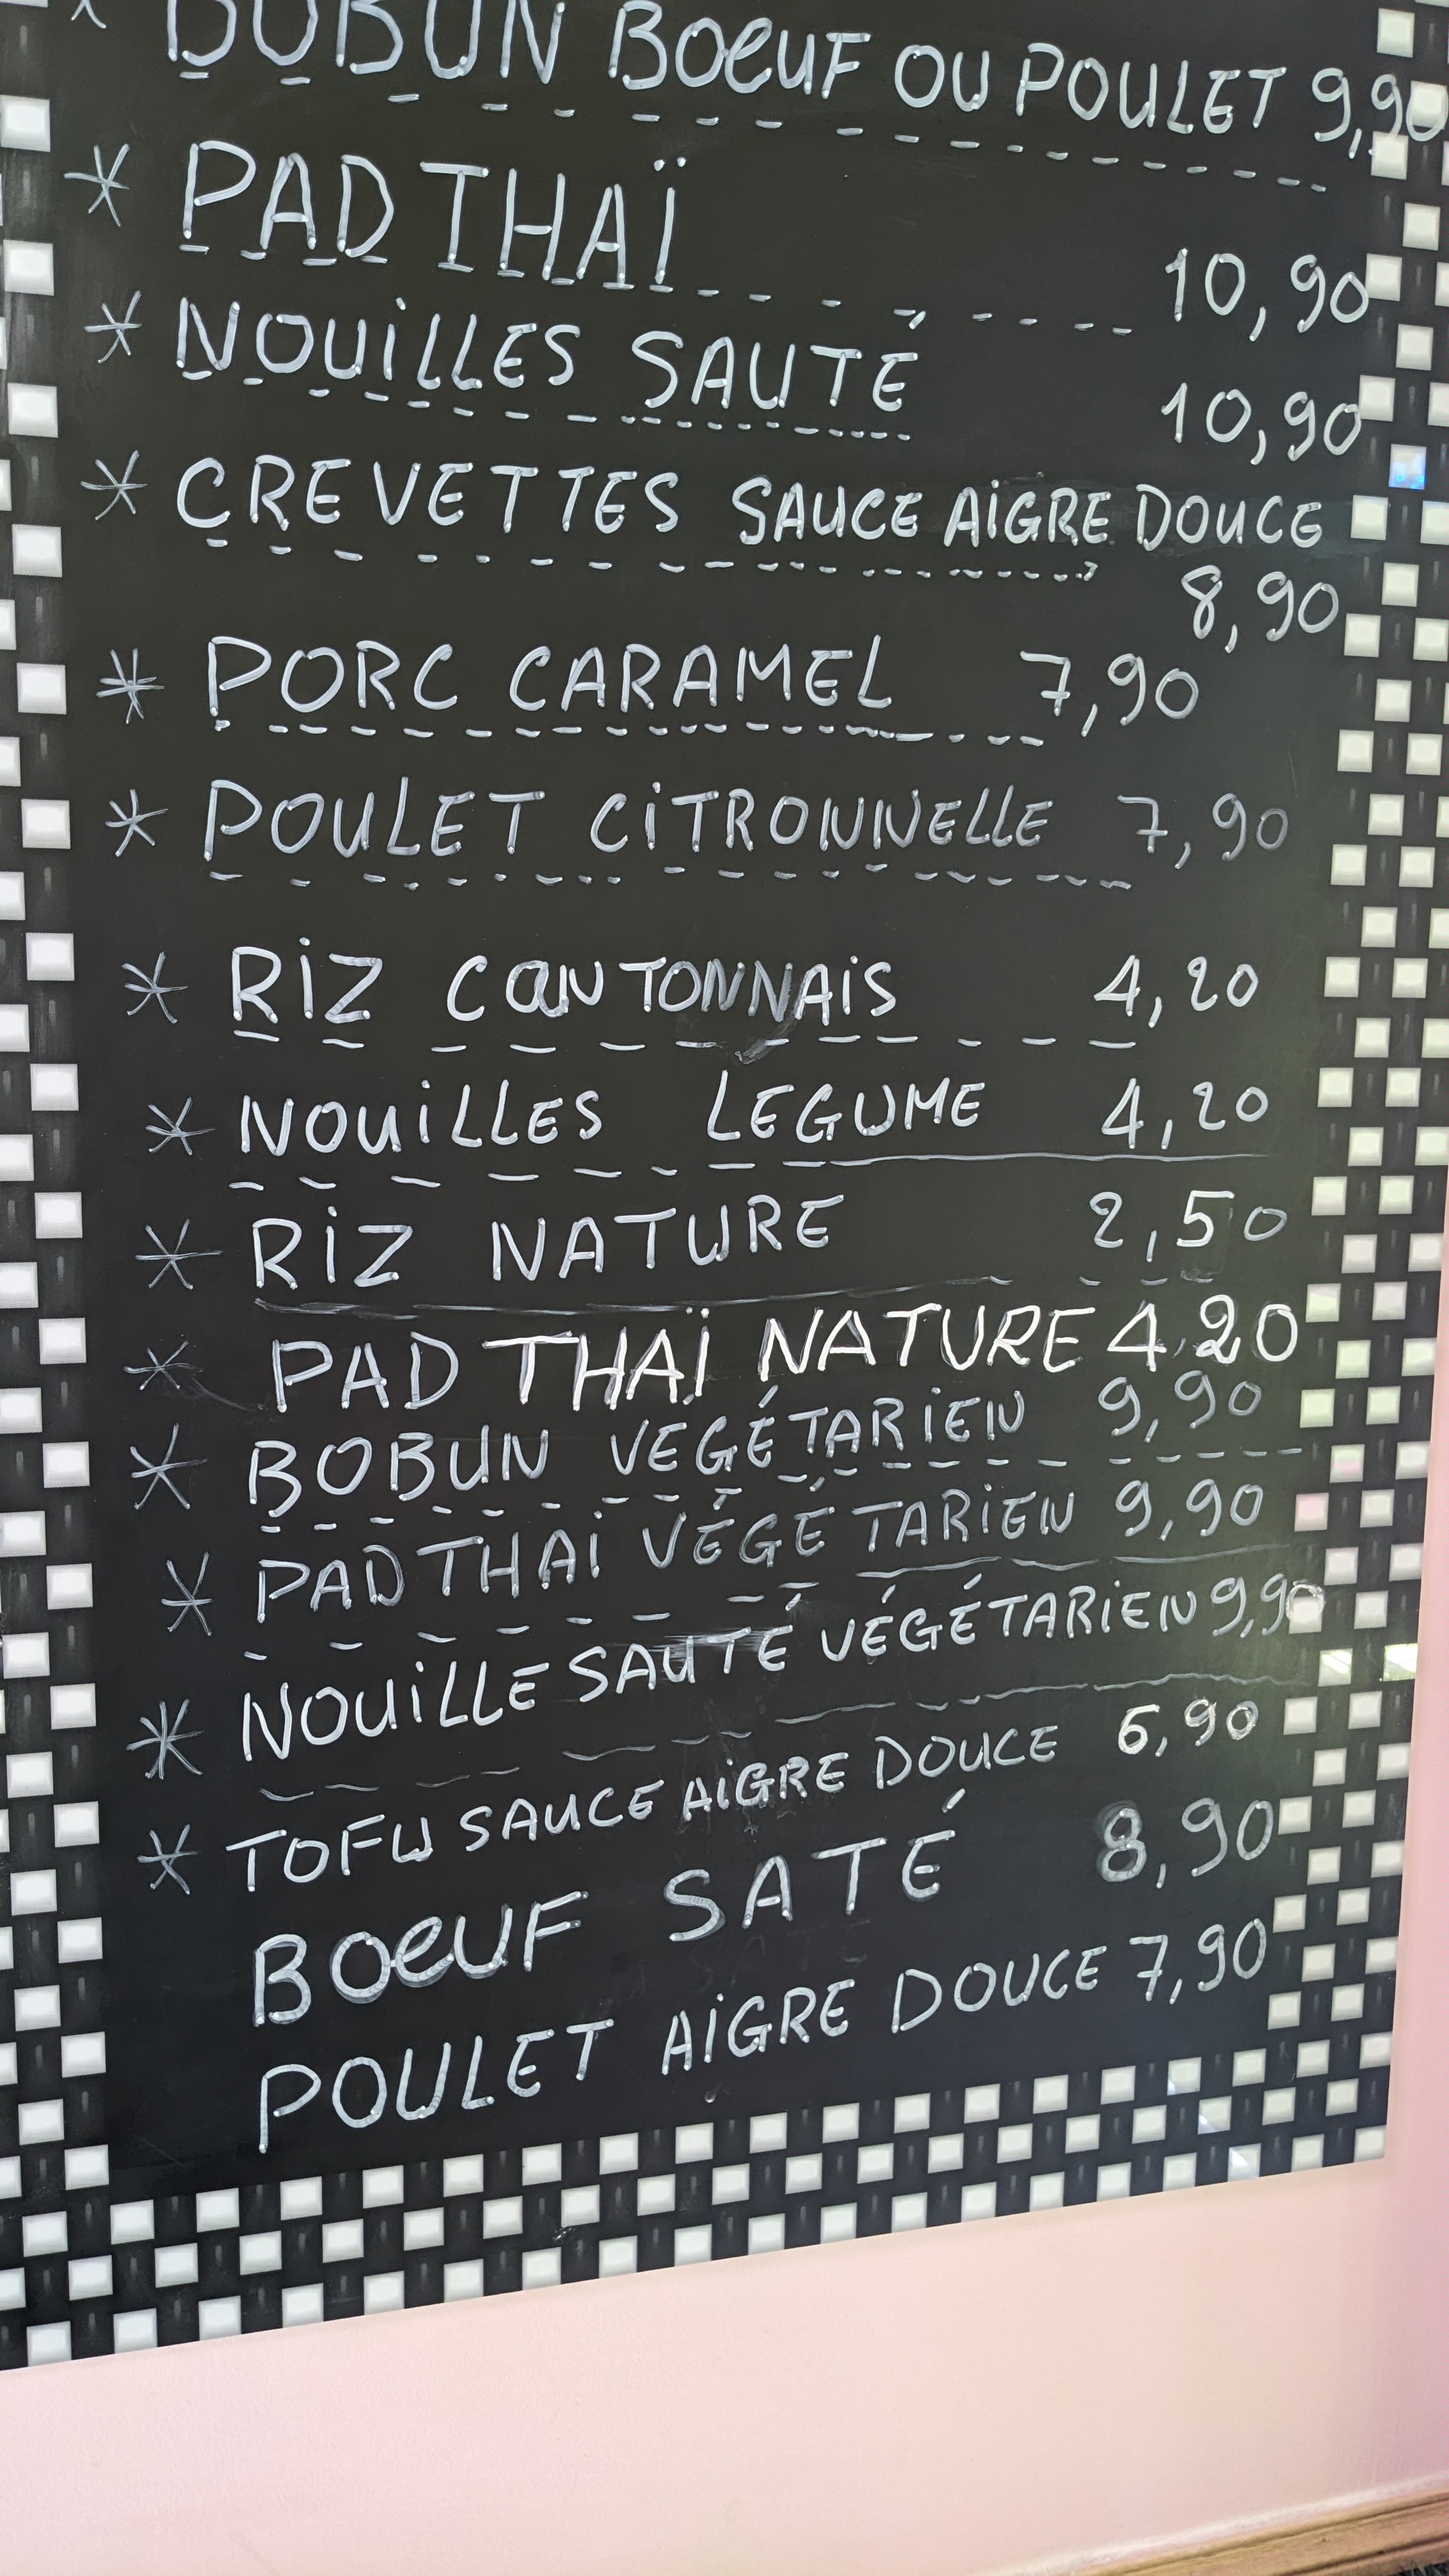 * BOBUN BOEUF OU POULET 9,90
* PAD THAÏ 10,90
* NOUILLES SAUTÉ 10,90
* CREVETTES SAUCE AIGRE DOUCE
8,90
* PORC CARAMEL 7,90
* POULET CITRONNELLE 7,90
* RIZ CANTONNAIS 4,20
* NOUILLES LEGUME 4,20
* RIZ NATURE 2,50
* PAD THAÏ NATURE 4,20
* BOBUN VEGÉTARIEN 9,90
* PAD THAI VÉGÉTARIEN 9,90
* NOUILLE SAUTÉ VÉGÉTARIEN 9,90
* TOFU SAUCE AIGRE DOUCE 6,90
BOEUF SATÉ 8,90
POULET AIGRE DOUCE 7,90